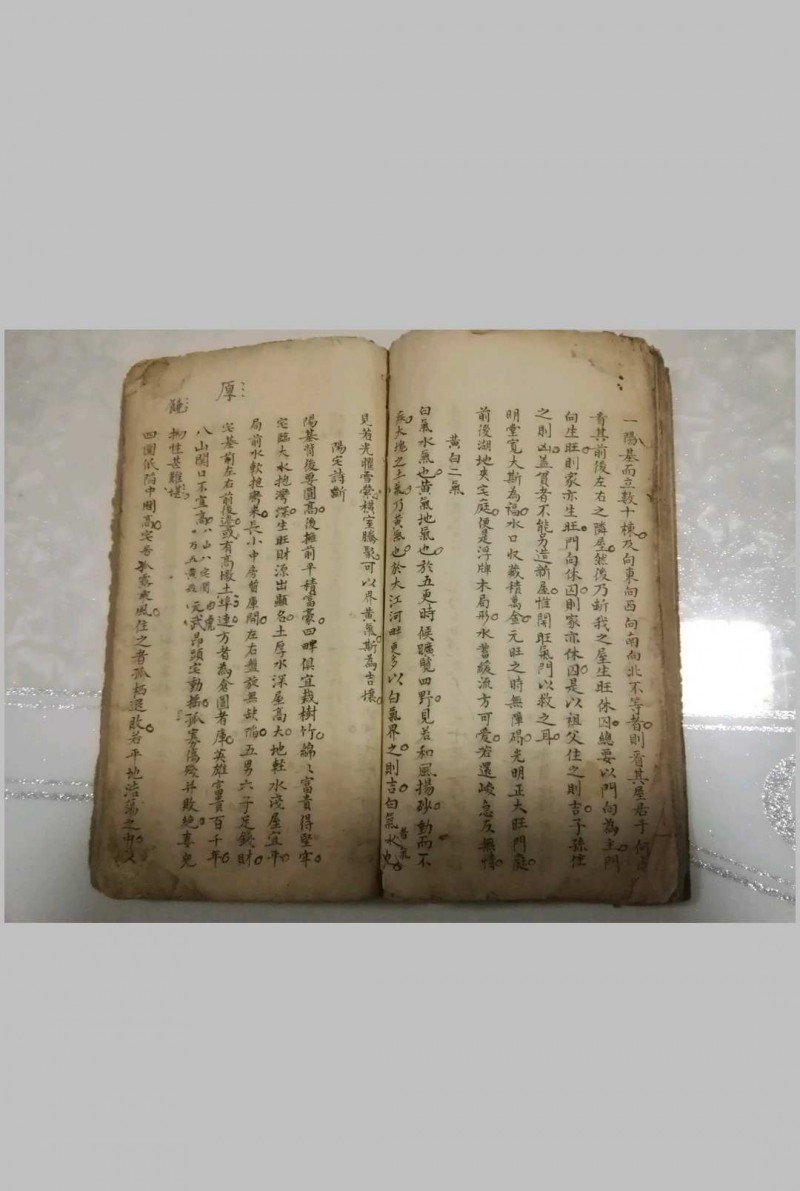 一陽基而立數十棟及向東向西向南向北不等者則看其屋居于何
看其前後左右之隣屋然後乃斷我之屋生旺休囚總要以門向為主門
向生旺則家亦生旺門向休囚則家亦休囚是以祖父住之則吉子孫住
之則凶蓋貧者不能另造新屋惟開旺氣門以救之耳
明堂寬大斯為福水口收藏積萬金元旺之時無障碍光明正大旺門庭
前後湖地夾宅庭便是浮牌木局形水蓄緩流方可愛若還峻急反無情
黃白二氣
白氣水氣也黃氣地氣也於五更時候曠覽四野見若和風揚砂動而不
大塊之土氣乃黃氣也於大江河畔更多以白氣界之則吉白氣水
見若光横室騰聚可以界黃氣斯為吉壤
陽宅詩斷
陽基背後要圓高後擁前平積富豪四畔俱宜栽樹竹綿々富貴得堅牢
宅臨大水抱灣深生旺財源出顯名土厚水深屋高大地輕水淺屋宜平
局前水軟抱彎來長小中房質庫開左右盤放無缺陷五男六子足錢財
宅基前左右前後邊或有高墩土埠連方者為倉圓者庫英雄富貴百千年
八山開口不宜高
元武昂頭宅動搖孤寡傷殘并敗絕
拗性甚難堪
四圍低陷中間高宅居孤露寒風住之者孤栖退敗若平地浩蕩之
厚